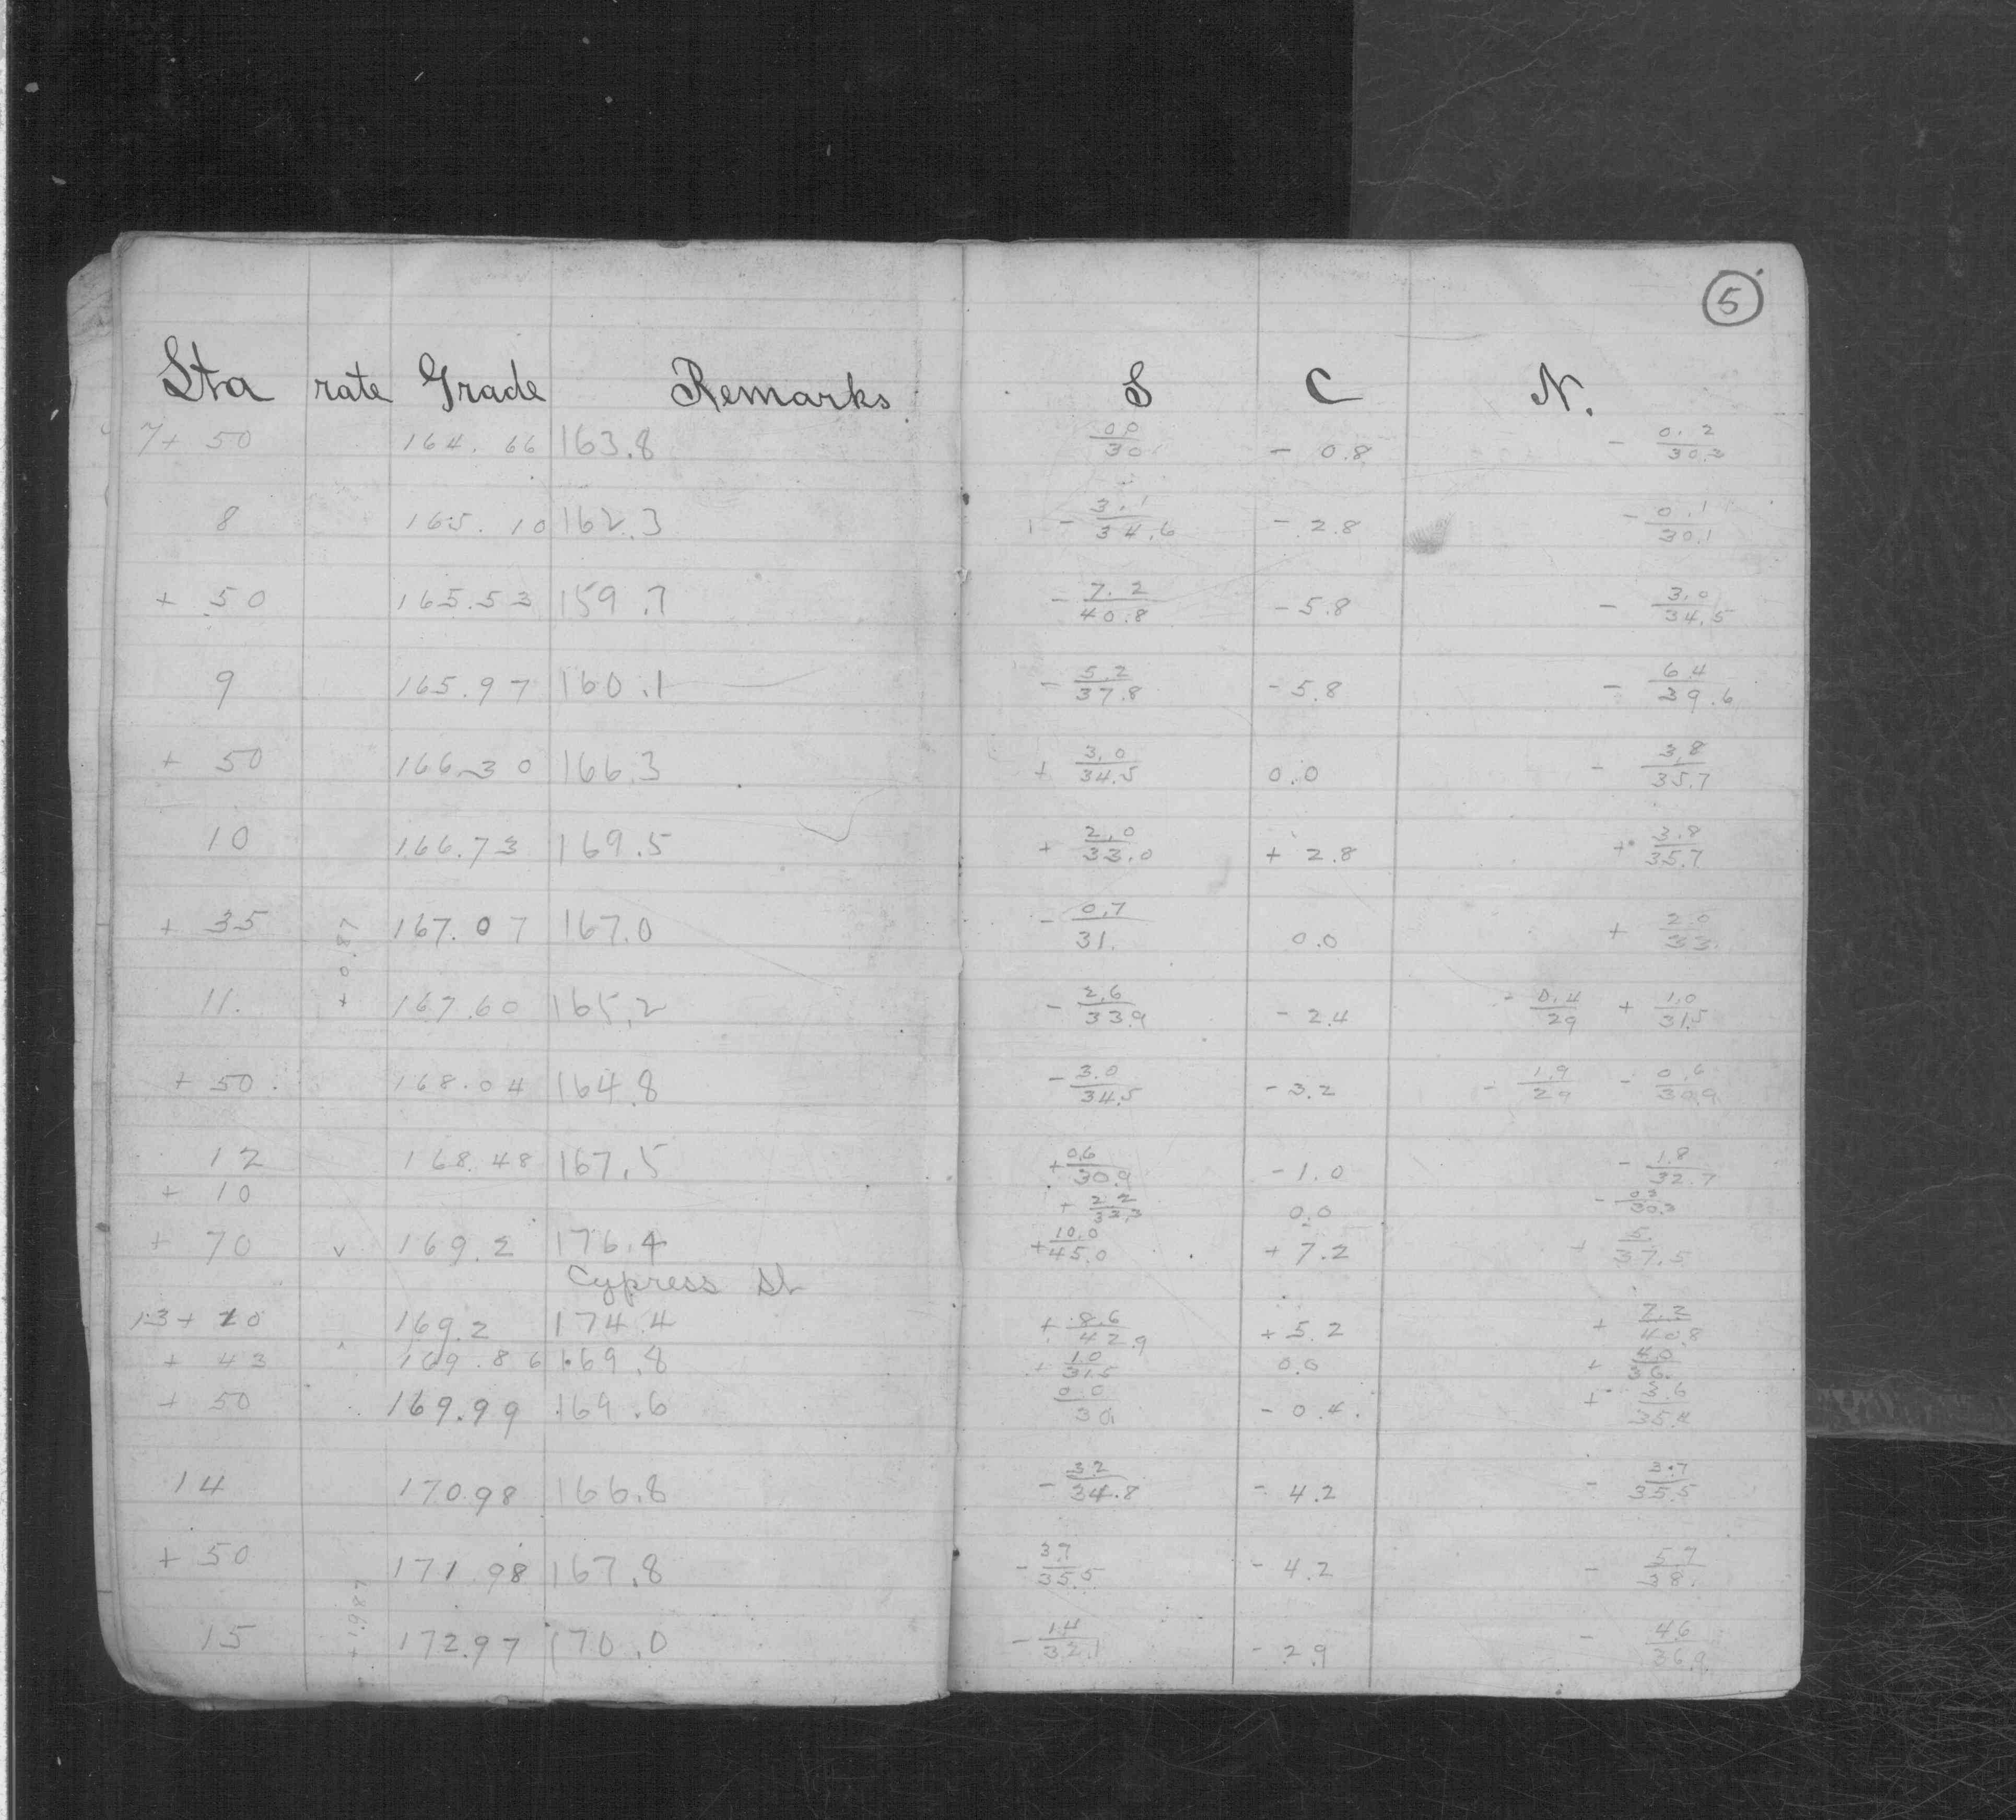 5
Sta rate Grade Remarks S C N.
7+ 50 164.66 163.8 00/30 - 0.8 - 0.2/30.3
8 165.10 162.3 - 3.1/34.6 - 2.8 - 0.1/30.1
+ 50 165.53 159.7 - 7.2/40.8 - 5.8 - 3.0/34.5
9 165.97 160.1 - 5.2/37.8 - 5.8 - 6.4/39.6
+ 50 166.30 166.3 + 3.0/34.5 0.0 - 3.8/35.7
10 166.73 169.5 + 2.0/33.0 + 2.8 + 3.8/35.7
+ 35 167.07 167.0 - 0.7/31. 0.0 + 2.0/33.
+ 0.87
11. 167.60 165.2 - 2.6/33.9 - 2.4 - 0.4/29 + 1.0/31.5
+ 50. 168.04 164.8 - 3.0/34.5 - 3.2 - 1.9/29 - 0.6/30.9
12 168.48 167.5 + 0.6/30.9 - 1.0 - 1.8/32.7
+ 10 + 2.2/33.3 0.0 - 0.2/30.3
+ 70 169.2 176.4 + 10.0/45.0 + 7.2 + 5./37.5
Cypress St
13+ 20 169.2 174.4 + 8.6/42.9 + 5.2 + 7.2/40.8
+ 43 169.86 169.8 + 1.0/31.5 0.0 + 4.0/36.
+ 50 169.99 169.6 0.0/30. - 0.4. + 3.6/35.4
14 170.98 166.8 - 3.2/34.8 - 4.2 - 3.7/35.5
+ 50 171.98 167.8 - 3.7/35.5 - 4.2 - 5.7/38.
+ 1.987
15 172.97 170.0 - 1.4/32.1 - 2.9 - 4.6/36.9